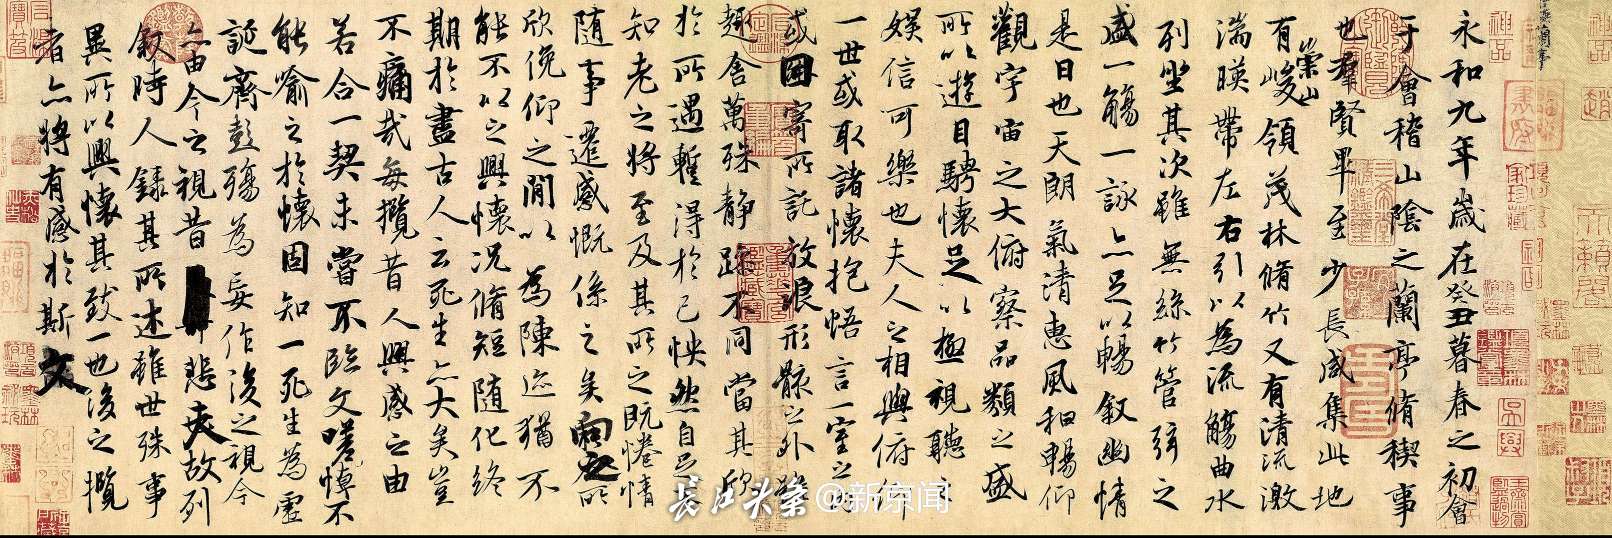 永和九年歲在癸丑暮春之初會
于會稽山陰之蘭亭脩稧事
也羣賢畢至少長咸集此地
有崇山峻領茂林脩竹又有清流激
湍暎帶左右引以為流觴曲水
列坐其次雖無絲竹管弦之
盛一觴一詠亦足以暢敘幽情
是日也天朗氣清惠風和暢仰
觀宇宙之大俯察品類之盛
所以遊目騁懷足以極視聽
娛信可樂也夫人之相與俯仰
一世或取諸懷抱悟言一室之內
或因寄所託放浪形骸之外雖
趣舍萬殊靜躁不同當其欣
於所遇蹔得於己怏然自足
知老之將至及其所之既惓情
隨事遷感慨係之矣向之所
欣俛仰之閒以為陳迹猶不
能不以之興懷況脩短隨化終
期於盡古人云死生亦大矣豈
不痛哉每攬昔人興感之由
若合一契未嘗不臨文嗟悼不
能喻之於懷固知一死生為虛
誕齊彭殤為妄作後之視今
亦由今之視昔悲夫故列
敘時人錄其所述雖世殊事
異所以興懷其致一也後之攬
者亦將有感於斯文
長江头条 @新京闻